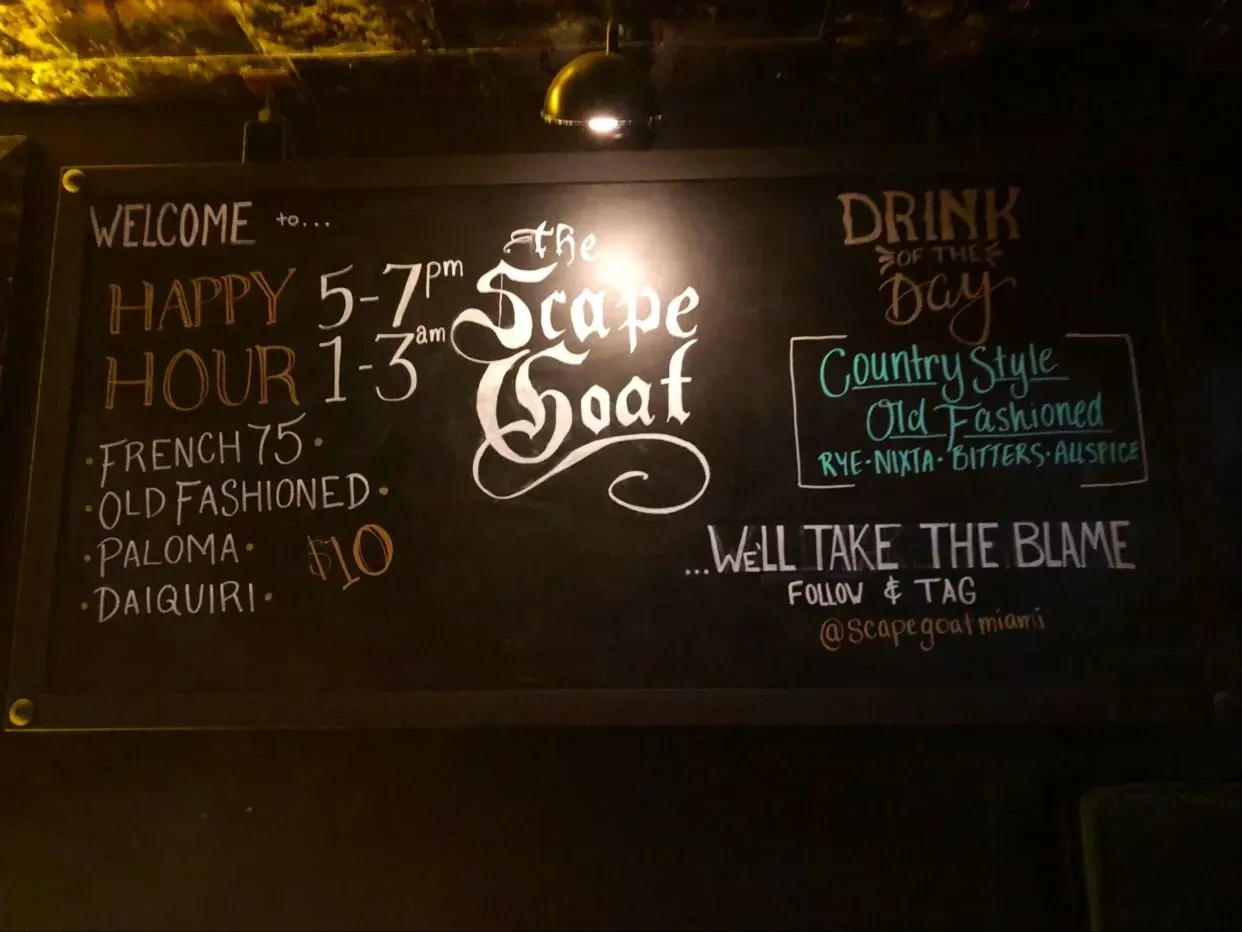 WELCOME to...
HAPPY 5-7pm
HOUR 1-3am
· FRENCH 75 ·
· OLD FASHIONED ·
· PALOMA ·
· DAIQUIRI ·
$10
the
Scape
Goat
DRINK
OF THE
Day
Country Style
Old Fashioned
RYE · NIXTA · BITTERS · ALLSPICE
...WE'LL TAKE THE BLAME
FOLLOW & TAG
@scapegoatmiami